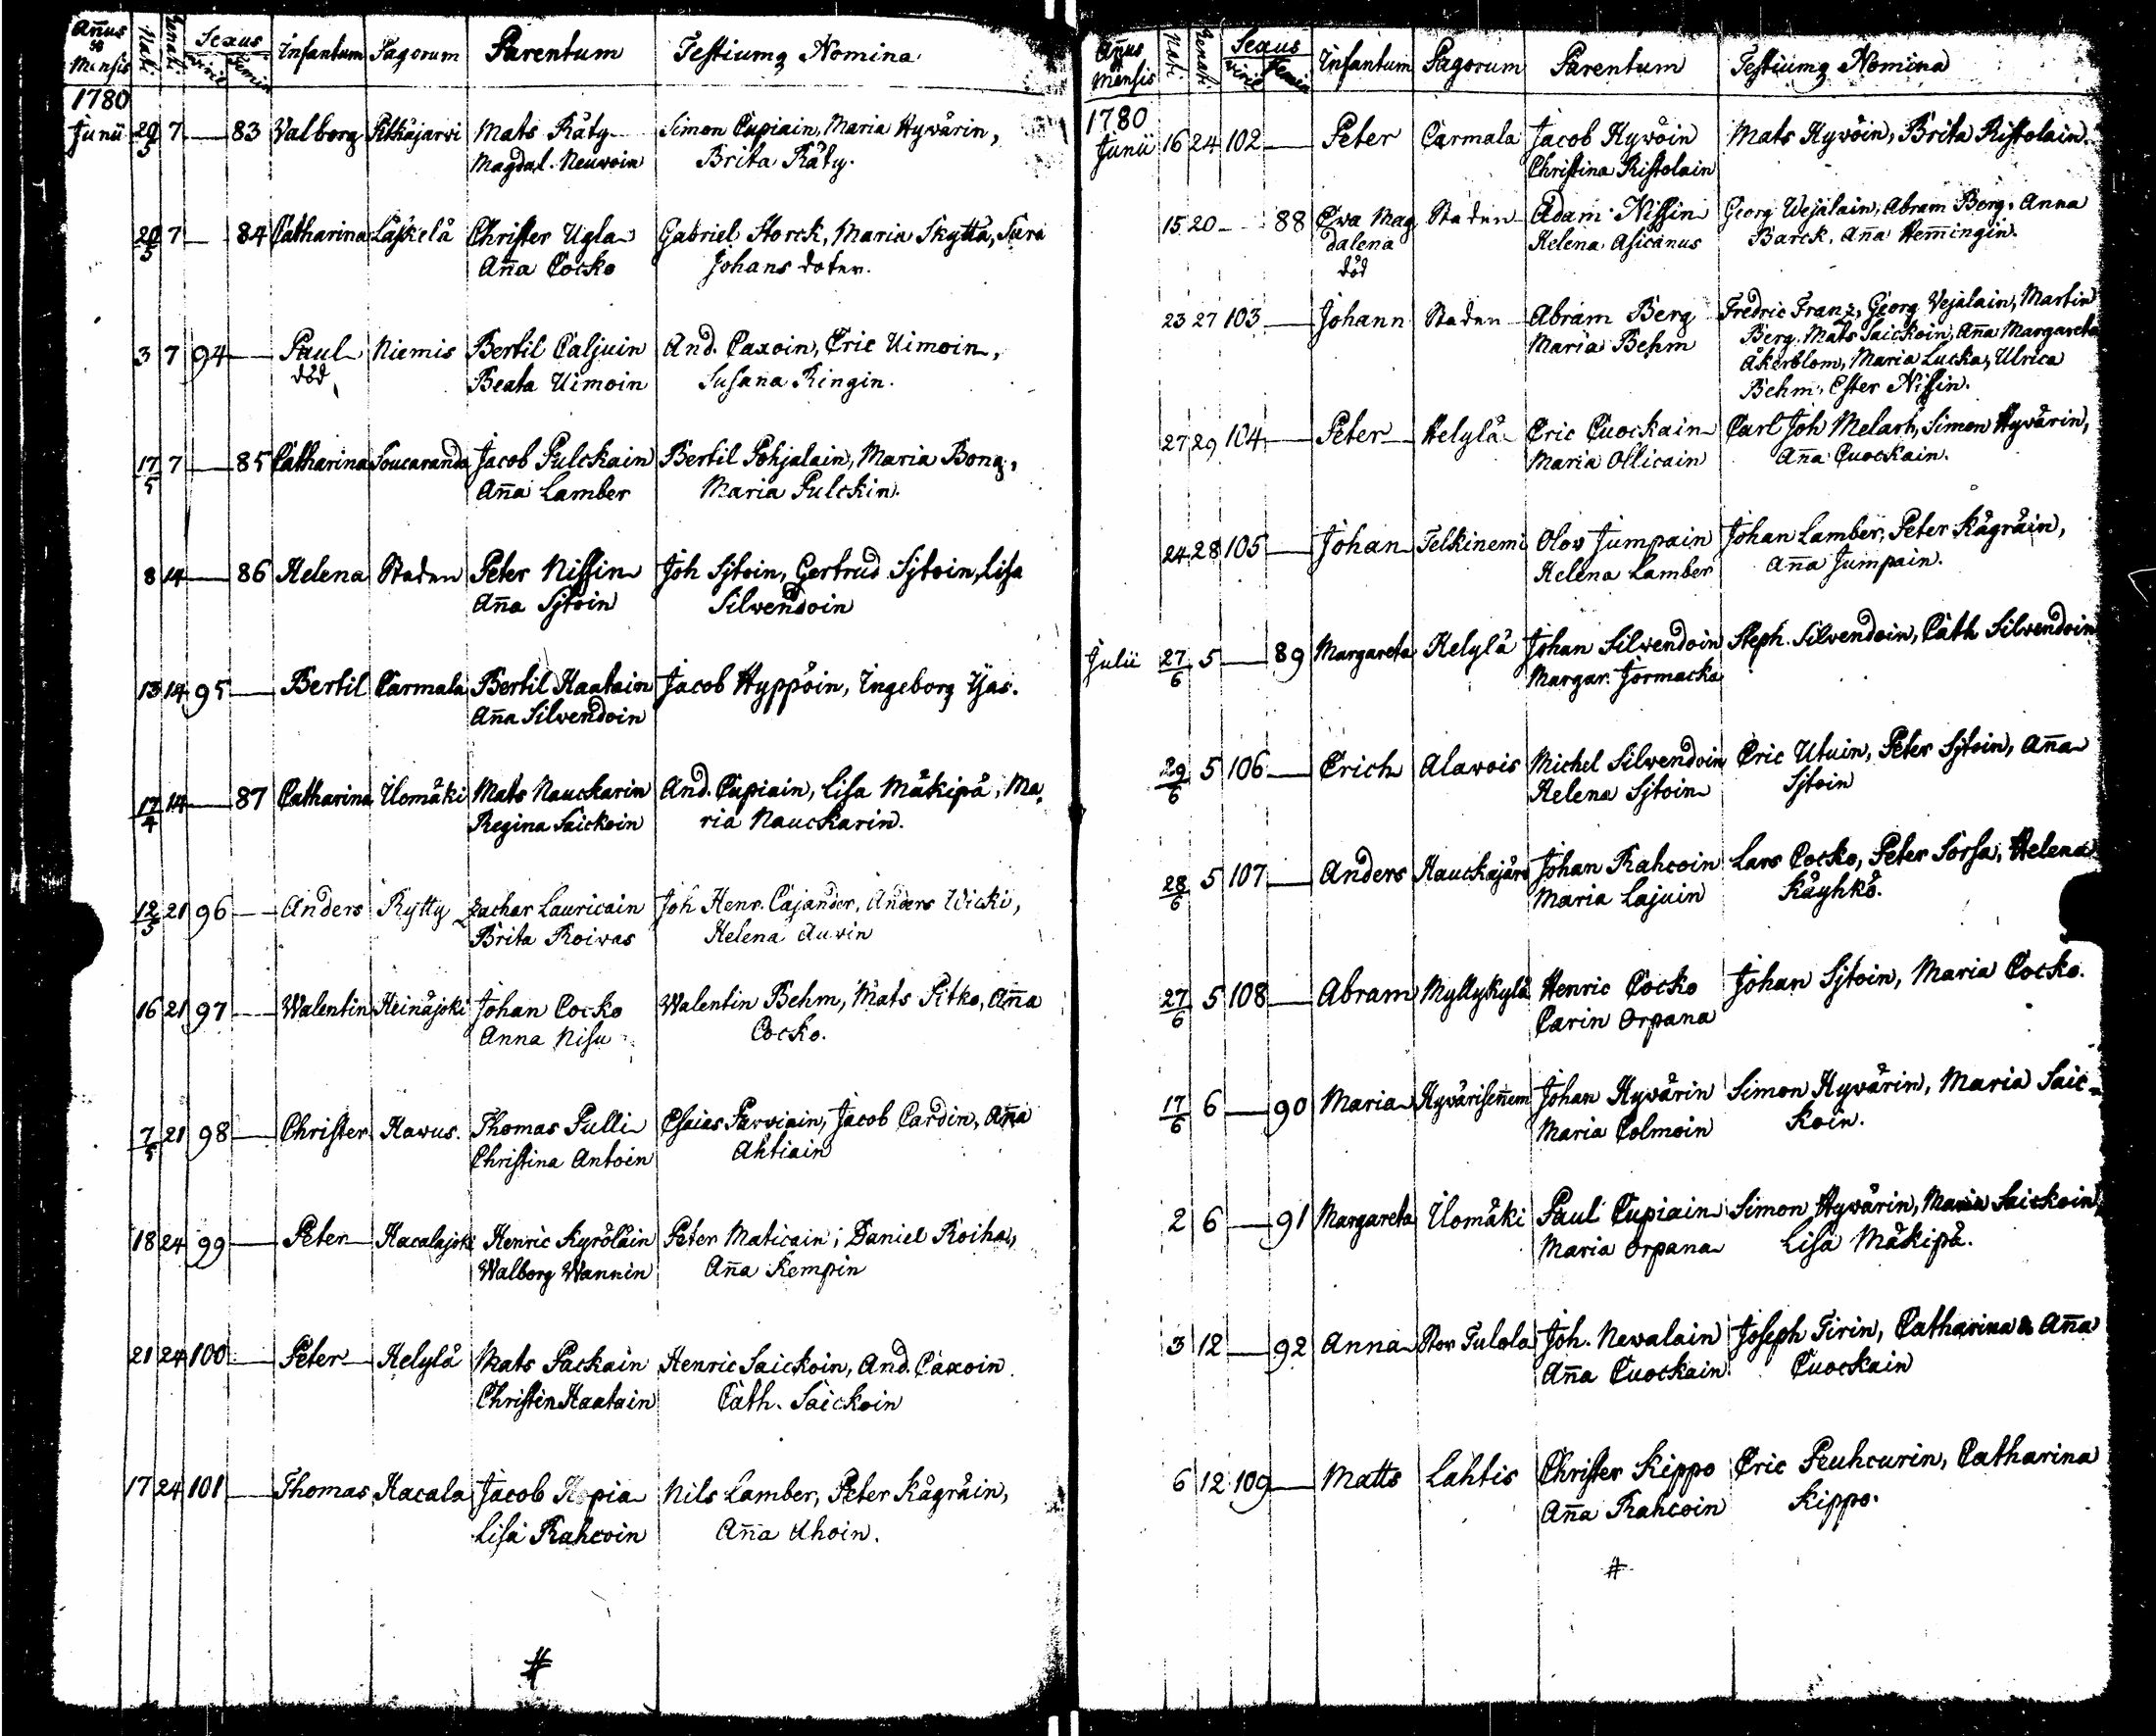 Añus et Mensis Nati Renati Sexus Infantum Pagorum Parentum Testiumq Nomina
viril femin
1780
Junii 20/5 7 — 83 Valborg Pitkäjärvi Mats Räty Simon Cupiain, Maria Hyvärin,
Magdal. Neuvoin Brita Räty.
20/5 7 — 84 Catharina Läskelä Christer Ugla Gabriel Storck, Maria Skyttä, Sara
Aña Cocko Johans doter.
3 7 94 — Paul Niemis Bertil Caljuin And. Caxoin, Eric Uimoin,
död Beata Uimoin Susana Ringin.
17/5 7 — 85 Catharina Soucaranda Jacob Pulckain Bertil Pohjalain, Maria Bong,
Aña Lamber Maria Pulckin.
8 14 — 86 Helena Staden Peter Nissin Joh Sjtoin, Gertrud Sjtoin, Lisa
Aña Sjtoin Silvendoin
13 14 95 — Bertil Carmala Bertil Haatain Jacob Hyppöin, Ingeborg Ijas.
Aña Silvendoin
17/4 14 — 87 Catharina Ilomäki Mats Nauckarin And. Cupiain, Lisa Mäkipä, Ma,
Regina Saickoin ria Nauckarin.
12/5 21 96 — Anders Rytty Zachar Lauricain Joh Henr. Cajander, Anders Wicki,
Brita Roivas Helena Auvin
16 21 97 — Walentin Heinäjoki Johan Cocko Walentin Behm, Mats Pitko, Aña
Anna Nisu Cocko.
7/5 21 98 — Christer Havus. Thomas Pulli Esaias Parviain, Jacob Cardin, Aña
Christina Antoin Ahtiain
18 24 99 — Peter Hacalajoki Henric Kyröläin Peter Maticain, Daniel Roiha,
Walborg Wannin Aña Kempin
21 24 100 — Peter Helylä Mats Packain Henric Saickoin, And. Caxoin
Christin Haatain Cath. Saickoin
17 24 101 — Thomas Hacala Jacob Nils Lamber, Peter Kägräin,
Lisa Rahcoin Aña Uhoin.
#
Añus et Mensis Nati Renati Sexus Infantum Pagorum Parentum Testiumq Nomina
viril femin
1780
Junii 16 24 102 — Peter Carmala Jacob Hyvöin Mats Hyvöin, Brita Ristolain.
Christina Ristolain
15 20 — 88 Ewa Mag Staden Adam Nissin Georg Wejalain, Abram Berg, Anna
dalena Helena Asicanus Barck, Aña Hemingin.
död
23 27 103 — Johann Staden Abram Berg Fredric Franz, Georg Vejalain, Martin
Maria Behm Berg, Mats Saickoin, Aña Margareta
Åkerblom, Maria Lucka, Ulrica
Behm, Ester Nissin.
27 29 104 — Peter Helylä Eric Cuockain Carl Joh Melart, Simon Hyvärin,
Maria Ollicain Aña Cuockain.
24 28 105 — Johan Telkinemi Olov Jumpain Johan Lamber, Peter Kägräin,
Helena Lamber Aña Jumpain.
Julii 27/6 5 — 89 Margareta Helylä Johan Silvendoin Steph. Silvendoin, Cath Silvendoin
Margar. Jormacka
29/6 5 106 — Erich Alavois Michel Silvendoin Eric Utuin, Peter Sjtoin, Aña
Helena Sjtoin Sjtoin
28/6 5 107 — Anders Hauckajärv Johan Rahcoin Lars Cocko, Peter Sorsa, Helena
Maria Lajuin Käyhkö.
27/6 5 108 — Abram Myllykylä Henric Cocko Johan Sjtoin, Maria Cocko.
Carin Orpana
17/6 6 — 90 Maria Hyvärisenem Johan Hyvärin Simon Hyvärin, Maria Saic-
Maria Colmoin koin.
2 6 — 91 Margareta Ilomäki Paul Cupiain Simon Hyvärin, Maria Saickoin,
Maria Orpana Lisa Mäkipä.
3 12 — 92 Anna Stor Tulola Joh. Newalain Joseph Tirin, Catharina & Aña
Aña Cuockain Cuockain
6 12 109 — Matts Lahtis Christer Kippo Eric Peuhcurin, Catharina
Aña Rahcoin Kippo.
#